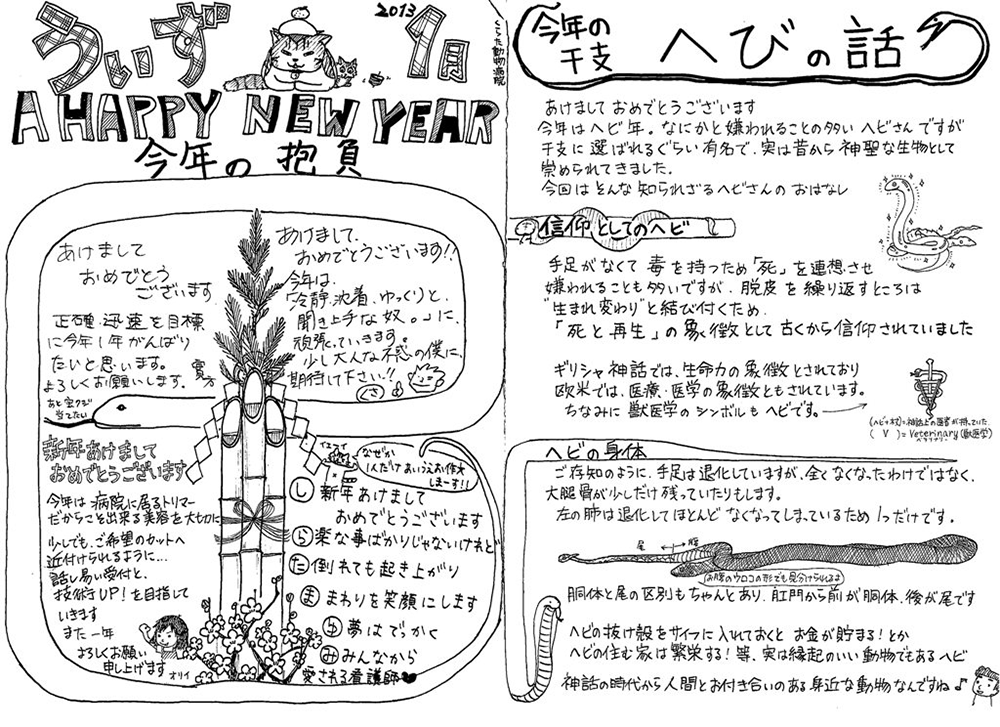 うぃず
2013
1月
くらた動物病院
A HAPPY NEW YEAR
今年の抱負
あけまして
おめでとう
ございます
正確、迅速を目標
に今年1年がんばり
たいと思います。
よろしくお願いします。
あと宝クジ
当てたい
あけまして、
おめでとうございます!!
今年は、
「冷静、沈着、ゆっくりと、
聞き上手な奴。」に、
頑張っていきます。
少し大人な不惑の僕に、
期待して下さい!!
新年あけまして
おめでとうございます
今年は病院に居るトリマー
だからこと出来る美容を大切に
少しでも、ご希望のセットへ
近付けられるように…
話し易い受付と、
技術UP!を目指して
いきます
また一年
よろしくお願い
申し上げます
オリイ
なぜか
1人だけあいうえお作文
しまーす!!
し 新年あけまして
おめでとうございます
ら 楽な事ばかりじゃないけれど
た 倒れても起き上がり
ま まわりを笑顔にします
ゆ 夢はでっかく
み みんなから
愛される看護師♥
今年の
干支
へびの話
あけましておめでとうございます
今年はヘビ年。なにかと嫌われることの多いヘビさんですが
干支に選ばれるぐらい有名で、実は昔から神聖な生物として
崇められてきました。
今回はそんな知られざるヘビさんのおはなし
信仰としてのヘビ
手足がなくて毒を持つため「死」を連想させ
嫌われることも多いですが、脱皮を繰り返すところは
"生まれ変わり"と結び付くため、
「死と再生」の象徴として古くから信仰されていました
ギリシャ神話では、生命力の象徴とされており
欧米では、医療・医学の象徴ともされています。
ちなみに獣医学のシンボルもヘビです。→
(ヘビの杖)=神話上の医者が持っていた
( V )=Veterinary(獣医学)
ベテリナリー
ヘビの身体
ご存知のように、手足は退化していますが、全てなくなったわけではなく、
大腿骨が少しだけ残っていたりもします。
左の肺は退化してほとんどなくなってしまっているため1つだけです。
尾 ← → 腹
お腹のウロコの形でも見分けられるよ
胴体と尾の区別もちゃんとあり、肛門から前が胴体、後が尾です
ヘビの抜け殻をサイフに入れておくとお金が貯まる!とか
ヘビの住む家は繁栄する!等、実は縁起のいい動物でもあるヘビ
神話の時代から人間とお付き合いのある身近な動物なんですね♪